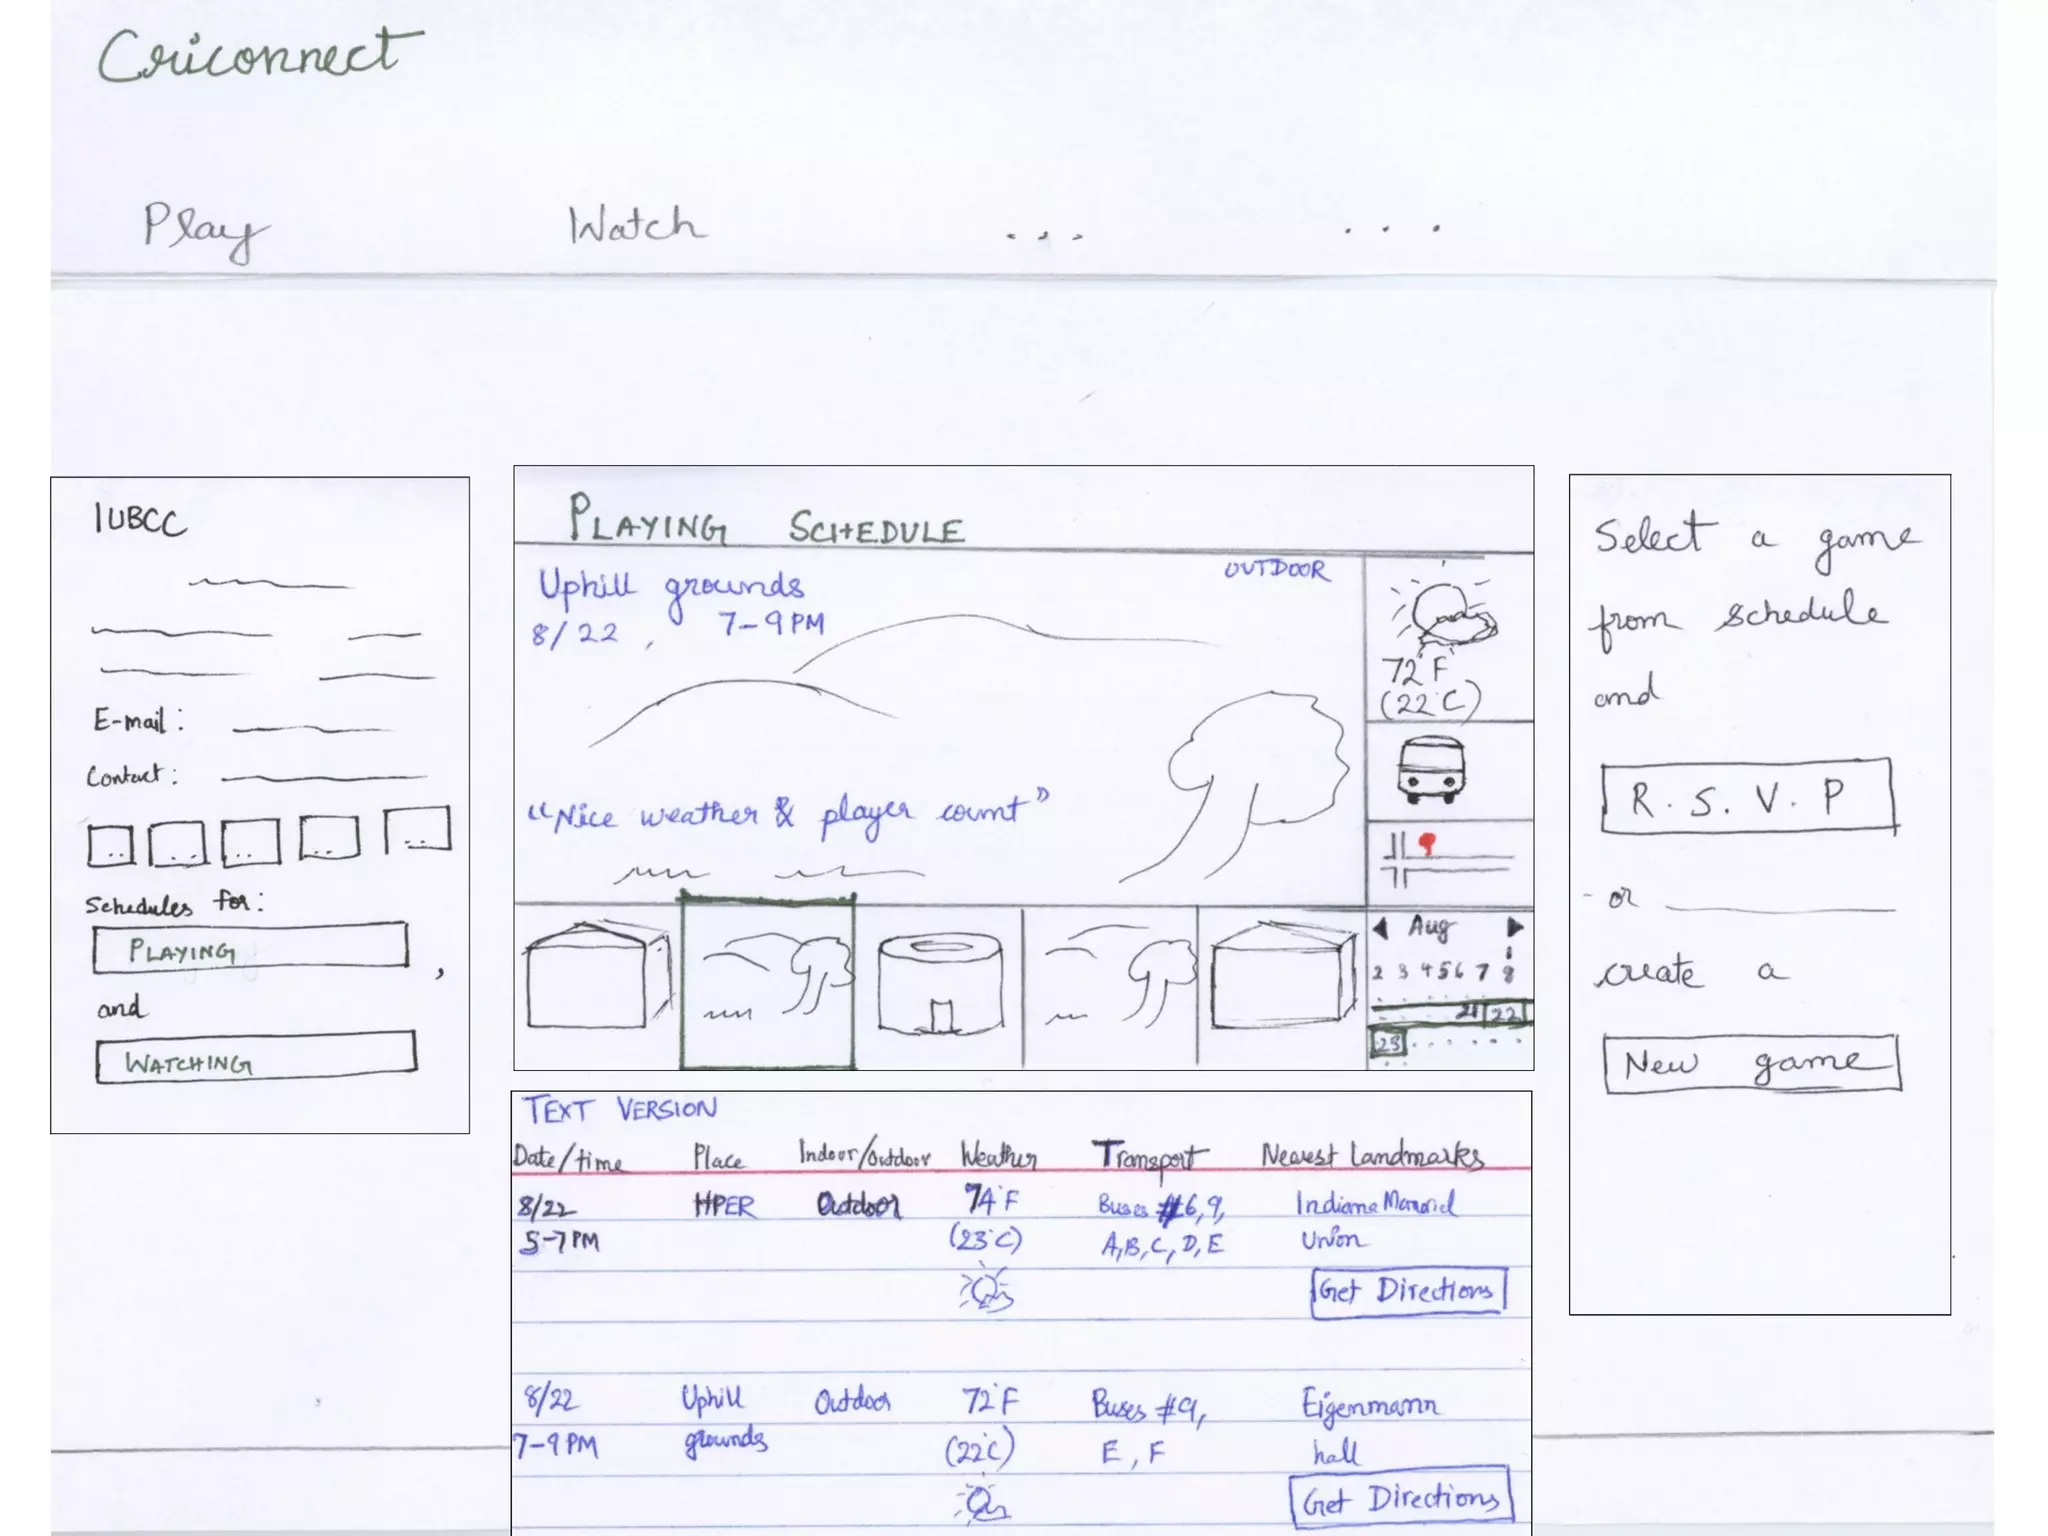 Criconnect
Play Watch ... ...
IUBCC
E-mail:
Contact:
Schedules for:
PLAYING ,
and
WATCHING
PLAYING SCHEDULE
Uphill grounds OUTDOOR
8/22 , 7-9PM
"Nice weather & player count"
72°F
(22°C)
Aug
1
2 3 4 5 6 7 8
21 22
23
Select a game
from schedule
and
R.S.V.P
- or
create a
New game
TEXT VERSION
Date/time Place Indoor/Outdoor Weather Transport Nearest Landmarks
8/22 HPER Outdoor 74°F Buses #6,9, Indiana Memorial
5-7PM (23°C) A,B,C,D,E Union
Get Directions
8/22 Uphill Outdoor 72°F Buses #9, Eigenmann
7-9PM grounds (22°C) E, F hall
Get Directions